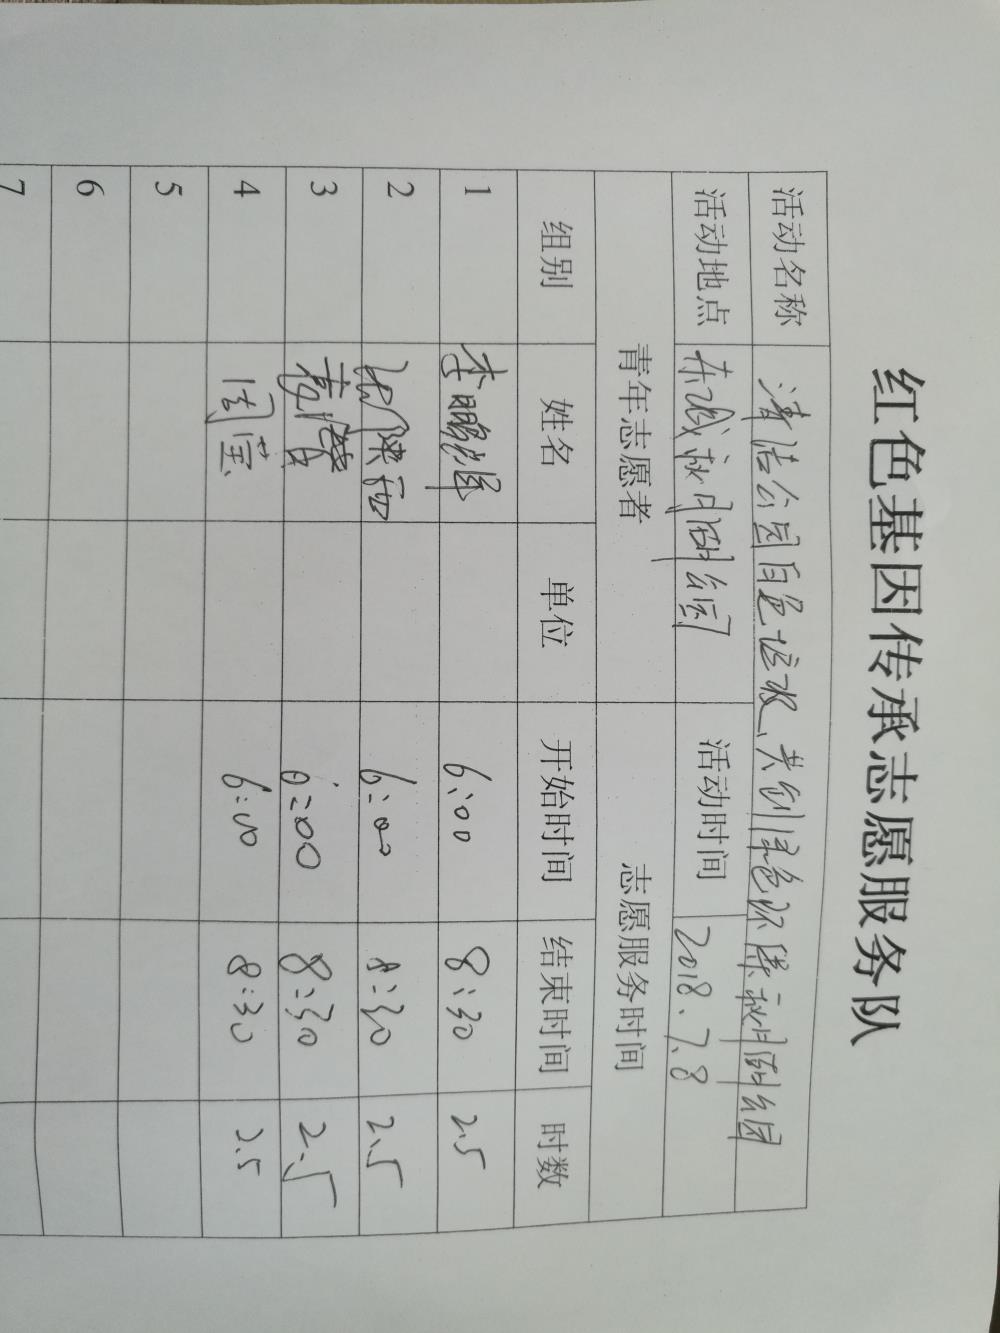 红色基因传承志愿服务队
活动名称 清洁公园白色垃圾、共创绿色环保秋月湖公园
活动地点 东城秋月湖公园 活动时间 2018.7.8
青年志愿者 志愿服务时间
组别 姓名 单位 开始时间 结束时间 时数
1 李鹏 6:00 8:30 2.5
2 6:00 8:30 2.5
3 6:00 8:30 2.5
4 周莹 6:00 8:30 2.5
5
6
7